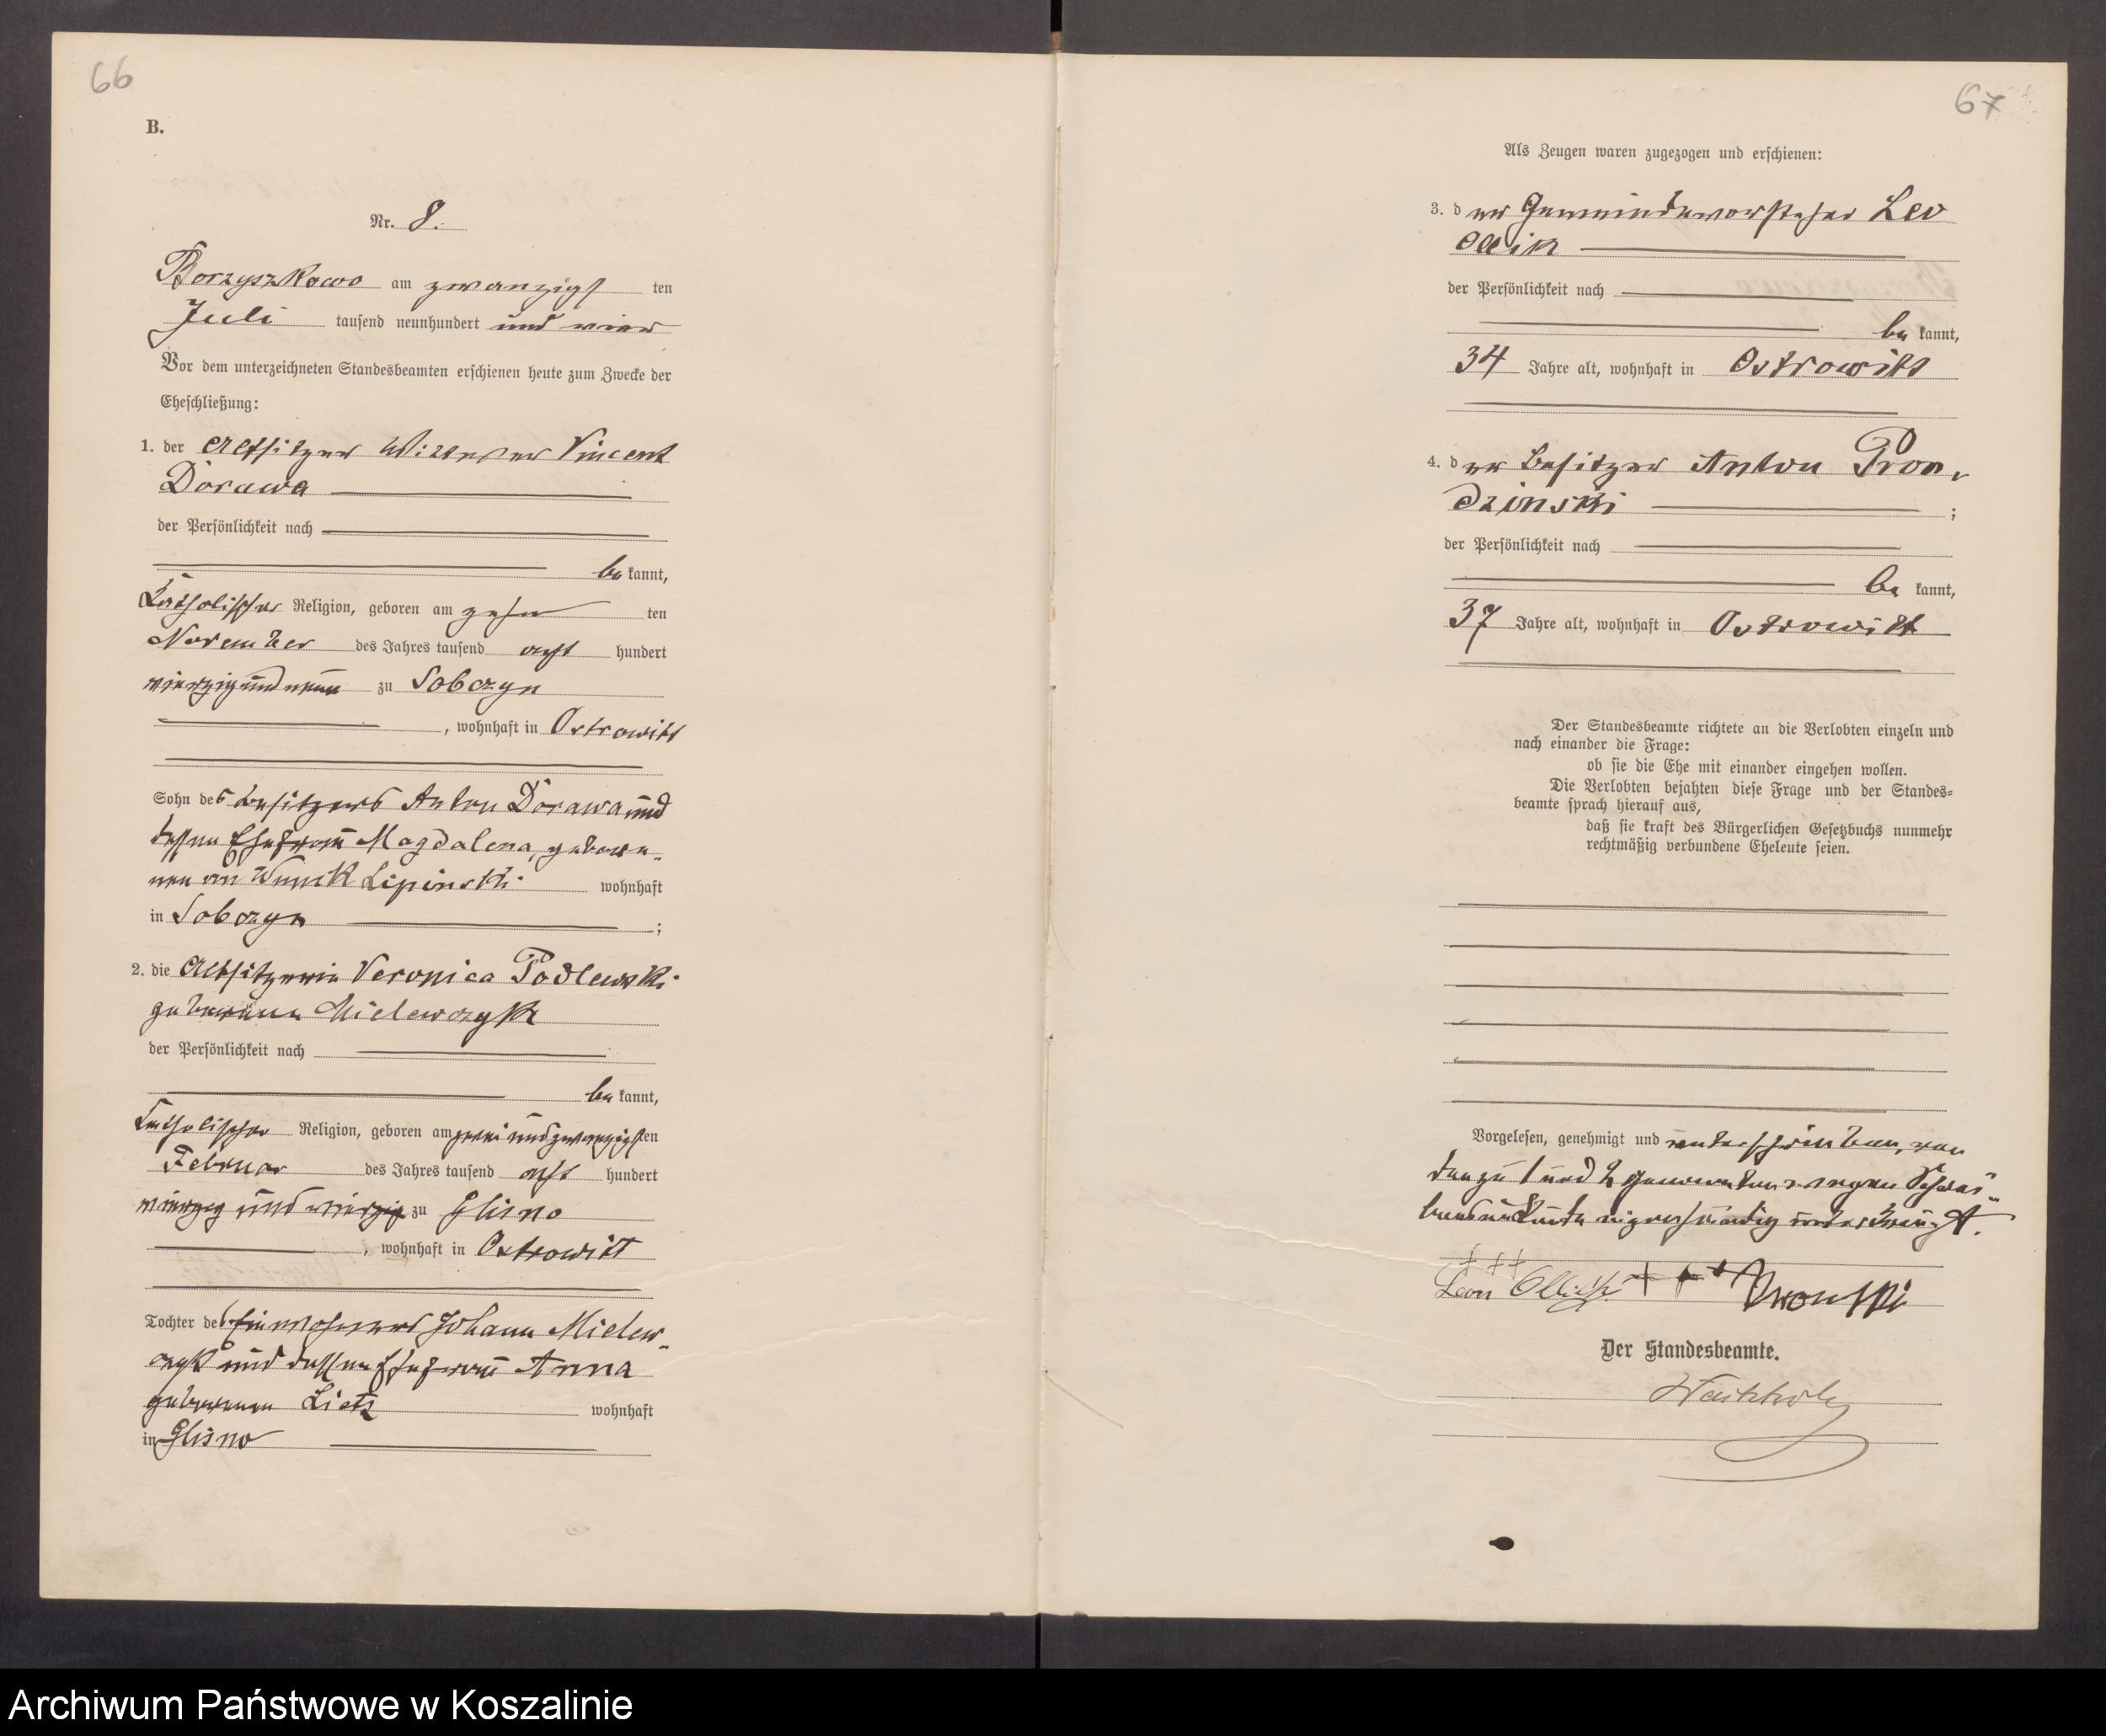 66
B.
Nr. 8.
Borzyszkowo am zwanzigs ten
Juli tausend neunhundert und vier
Vor dem unterzeichneten Standesbeamten erschienen heute zum Zwecke der
Eheschließung:
1. der Altsitzer Wittwer Vincent
Dorawa
der Persönlichkeit nach
be kannt,
katholischer Religion, geboren am zehn ten
November des Jahres tausend acht hundert
vierzig und neun zu Sobczyn
, wohnhaft in Ostrowitt
Sohn des Besitzers Anton Dorawa und
dessen Ehefrau Magdalena, gebore-
nen von Wnuck Lipinski wohnhaft
in Sobczyn ;
2. die Altsitzerin Veronica Podlewski
geborene Mielewczyk
der Persönlichkeit nach
be kannt,
katholischer Religion, geboren am zwei und zwanzigsten
Februar des Jahres tausend acht hundert
vierzig und vierzig zu Glisno
, wohnhaft in Ostrowitt
Tochter des Einwohners Johann Mielew-
czyk und dessen Ehefrau Anna
geborenen Lietz wohnhaft
in Glisno
67
Als Zeugen waren zugezogen und erschienen:
3. der Gemeindevorsteher Leo
Ollik
der Persönlichkeit nach
be kannt,
34 Jahre alt, wohnhaft in Ostrowitt
4. der Besitzer Anton Pron-
dzinski ;
der Persönlichkeit nach
be kannt,
37 Jahre alt, wohnhaft in Ostrowitt
Der Standesbeamte richtete an die Verlobten einzeln und
nach einander die Frage:
ob sie die Ehe mit einander eingehen wollen.
Die Verlobten bejahten diese Frage und der Standes=
beamte sprach hierauf aus,
daß sie kraft des Bürgerlichen Gesetzbuchs nunmehr
rechtmäßig verbundene Eheleute seien.
Vorgelesen, genehmigt und unterschrieben, von
den zu 1 und 2 genannten wegen Schrei-
bensunkunde eigenhändig unterkreuzt.
+ + +
Leon + + +
Der Standesbeamte.
Archiwum Państwowe w Koszalinie